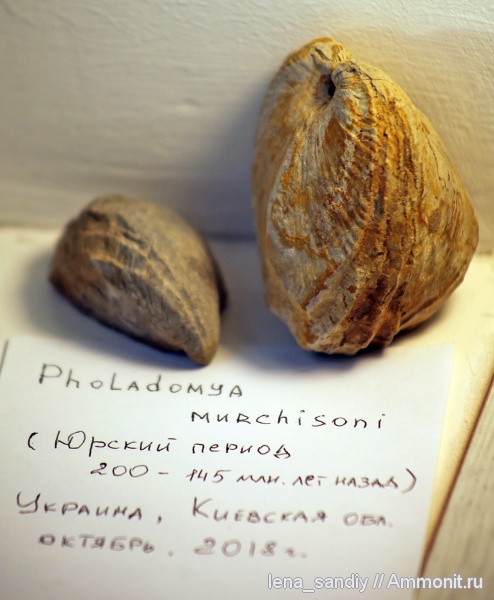 Pholadomya
murchisoni
(Юрский период
200 - 145 млн. лет назад)
Украина, Киевская обл.
октябрь. 2018 г.
lena_sandiy // Ammonit.ru